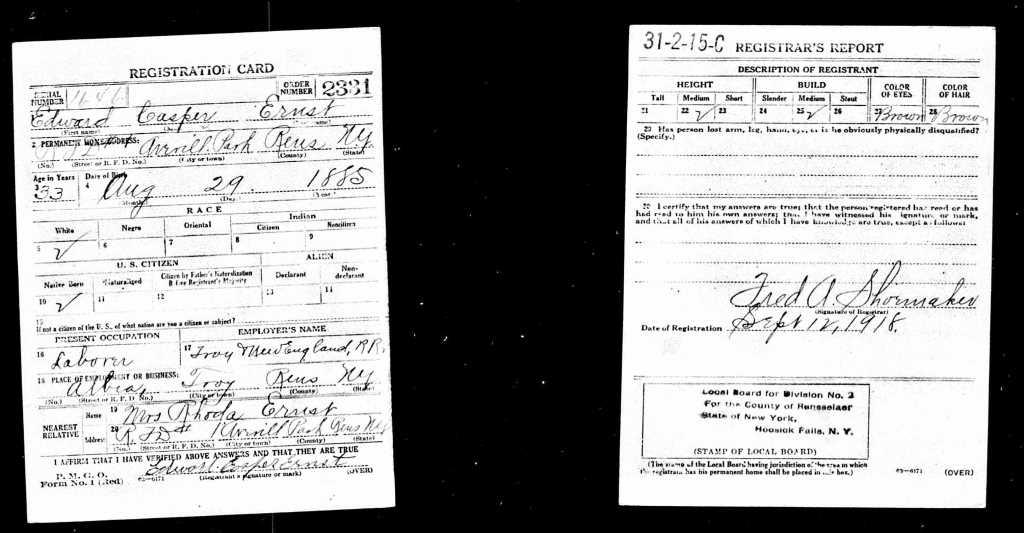 REGISTRATION CARD
SERIAL NUMBER
ORDER NUMBER 2331
Edward Casper Ernst
(First name)
2 PERMANENT HOME ADDRESS:
Averill Park Rens NY
(No.) (Street or R. F. D. No.) (City or town) (County) (State)
Age in Years Date of Birth
3 33 4 Aug 29. 1885
(Month) (Day) (Year)
RACE
White Negro Oriental Indian
Citizen Noncitizen
5 ✓ 6 7 8 9
U. S. CITIZEN ALIEN
Native Born Naturalized Citizen by Father's Naturalization Before Registrant's Majority Declarant Non-declarant
10 ✓ 11 12 13 14
15
If not a citizen of the U. S., of what nation are you a citizen or subject?
PRESENT OCCUPATION EMPLOYER'S NAME
16 Laborer 17 Troy & New England, R.R.
18 PLACE OF EMPLOYMENT OR BUSINESS:
Albia, Troy Rens NY
(No.) (Street or R. F. D. No.) (City or town) (County) (State)
NEAREST RELATIVE
Name 19 Mrs Rhoda Ernst
Address 20 R.F.D. # 1 Averill Park Rens NY
(No.) (Street or R. F. D. No.) (City or town) (County) (State)
I AFFIRM THAT I HAVE VERIFIED ABOVE ANSWERS AND THAT THEY ARE TRUE
P. M. G. O. Edward Casper Ernst
Form No. 1 (Red) 03—6171 (Registrant's signature or mark) (OVER)
31-2-15-C REGISTRAR'S REPORT
DESCRIPTION OF REGISTRANT
HEIGHT BUILD COLOR OF EYES COLOR OF HAIR
Tall Medium Short Slender Medium Stout
21 22 ✓ 23 24 25 ✓ 26 27 Brown 28 Brown
29 Has person lost arm, leg, hand, eye, or is he obviously physically disqualified?
(Specify.)
30 I certify that my answers are true; that the person registered has read or has
had read to him his own answers; that I have witnessed his signature or mark,
and that all of his answers of which I have knowledge are true, except as follows:
Fred A. Shoemaker
(Signature of Registrar)
Date of Registration Sept 12, 1918.
Local Board for Division No. 2
For the County of Rensselaer
State of New York,
Hoosick Falls, N. Y.
(STAMP OF LOCAL BOARD)
(The stamp of the Local Board having jurisdiction of the area in which
the registrant has his permanent home shall be placed in this box.)
03—6171 (OVER)